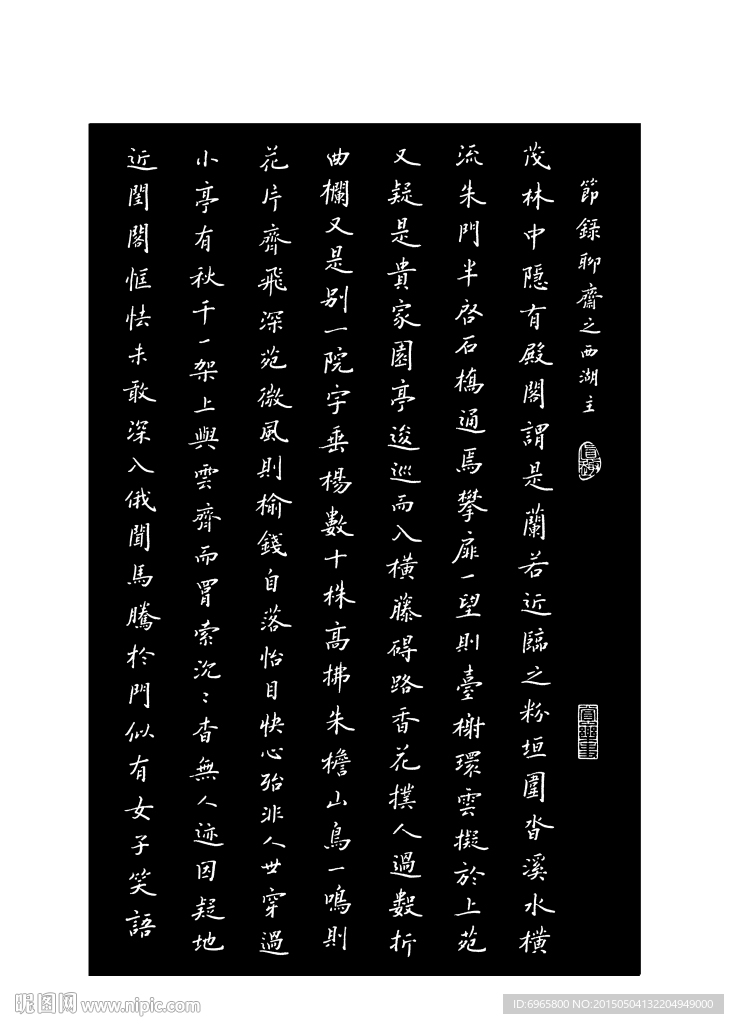 節録聊齋之西湖主
茂林中隠有殿閣謂是蘭若近臨之粉垣圍沓溪水横
流朱門半啓石橋通焉攀扉一望則臺榭環雲擬於上苑
又疑是貴家園亭逡巡而入横藤碍路香花撲人過數折
曲欄又是别一院宇垂楊數十株高拂朱檐山鳥一鳴則
花片齊飛深苑微風則榆錢自落怡目快心殆非人世穿過
小亭有秋千一架上與雲齊而罥索沉〻杳無人迹因疑地
近閨閣恇怯未敢深入俄聞馬騰於門似有女子笑語
昵图网 www.nipic.com
ID:6965800 NO:20150504132204949000